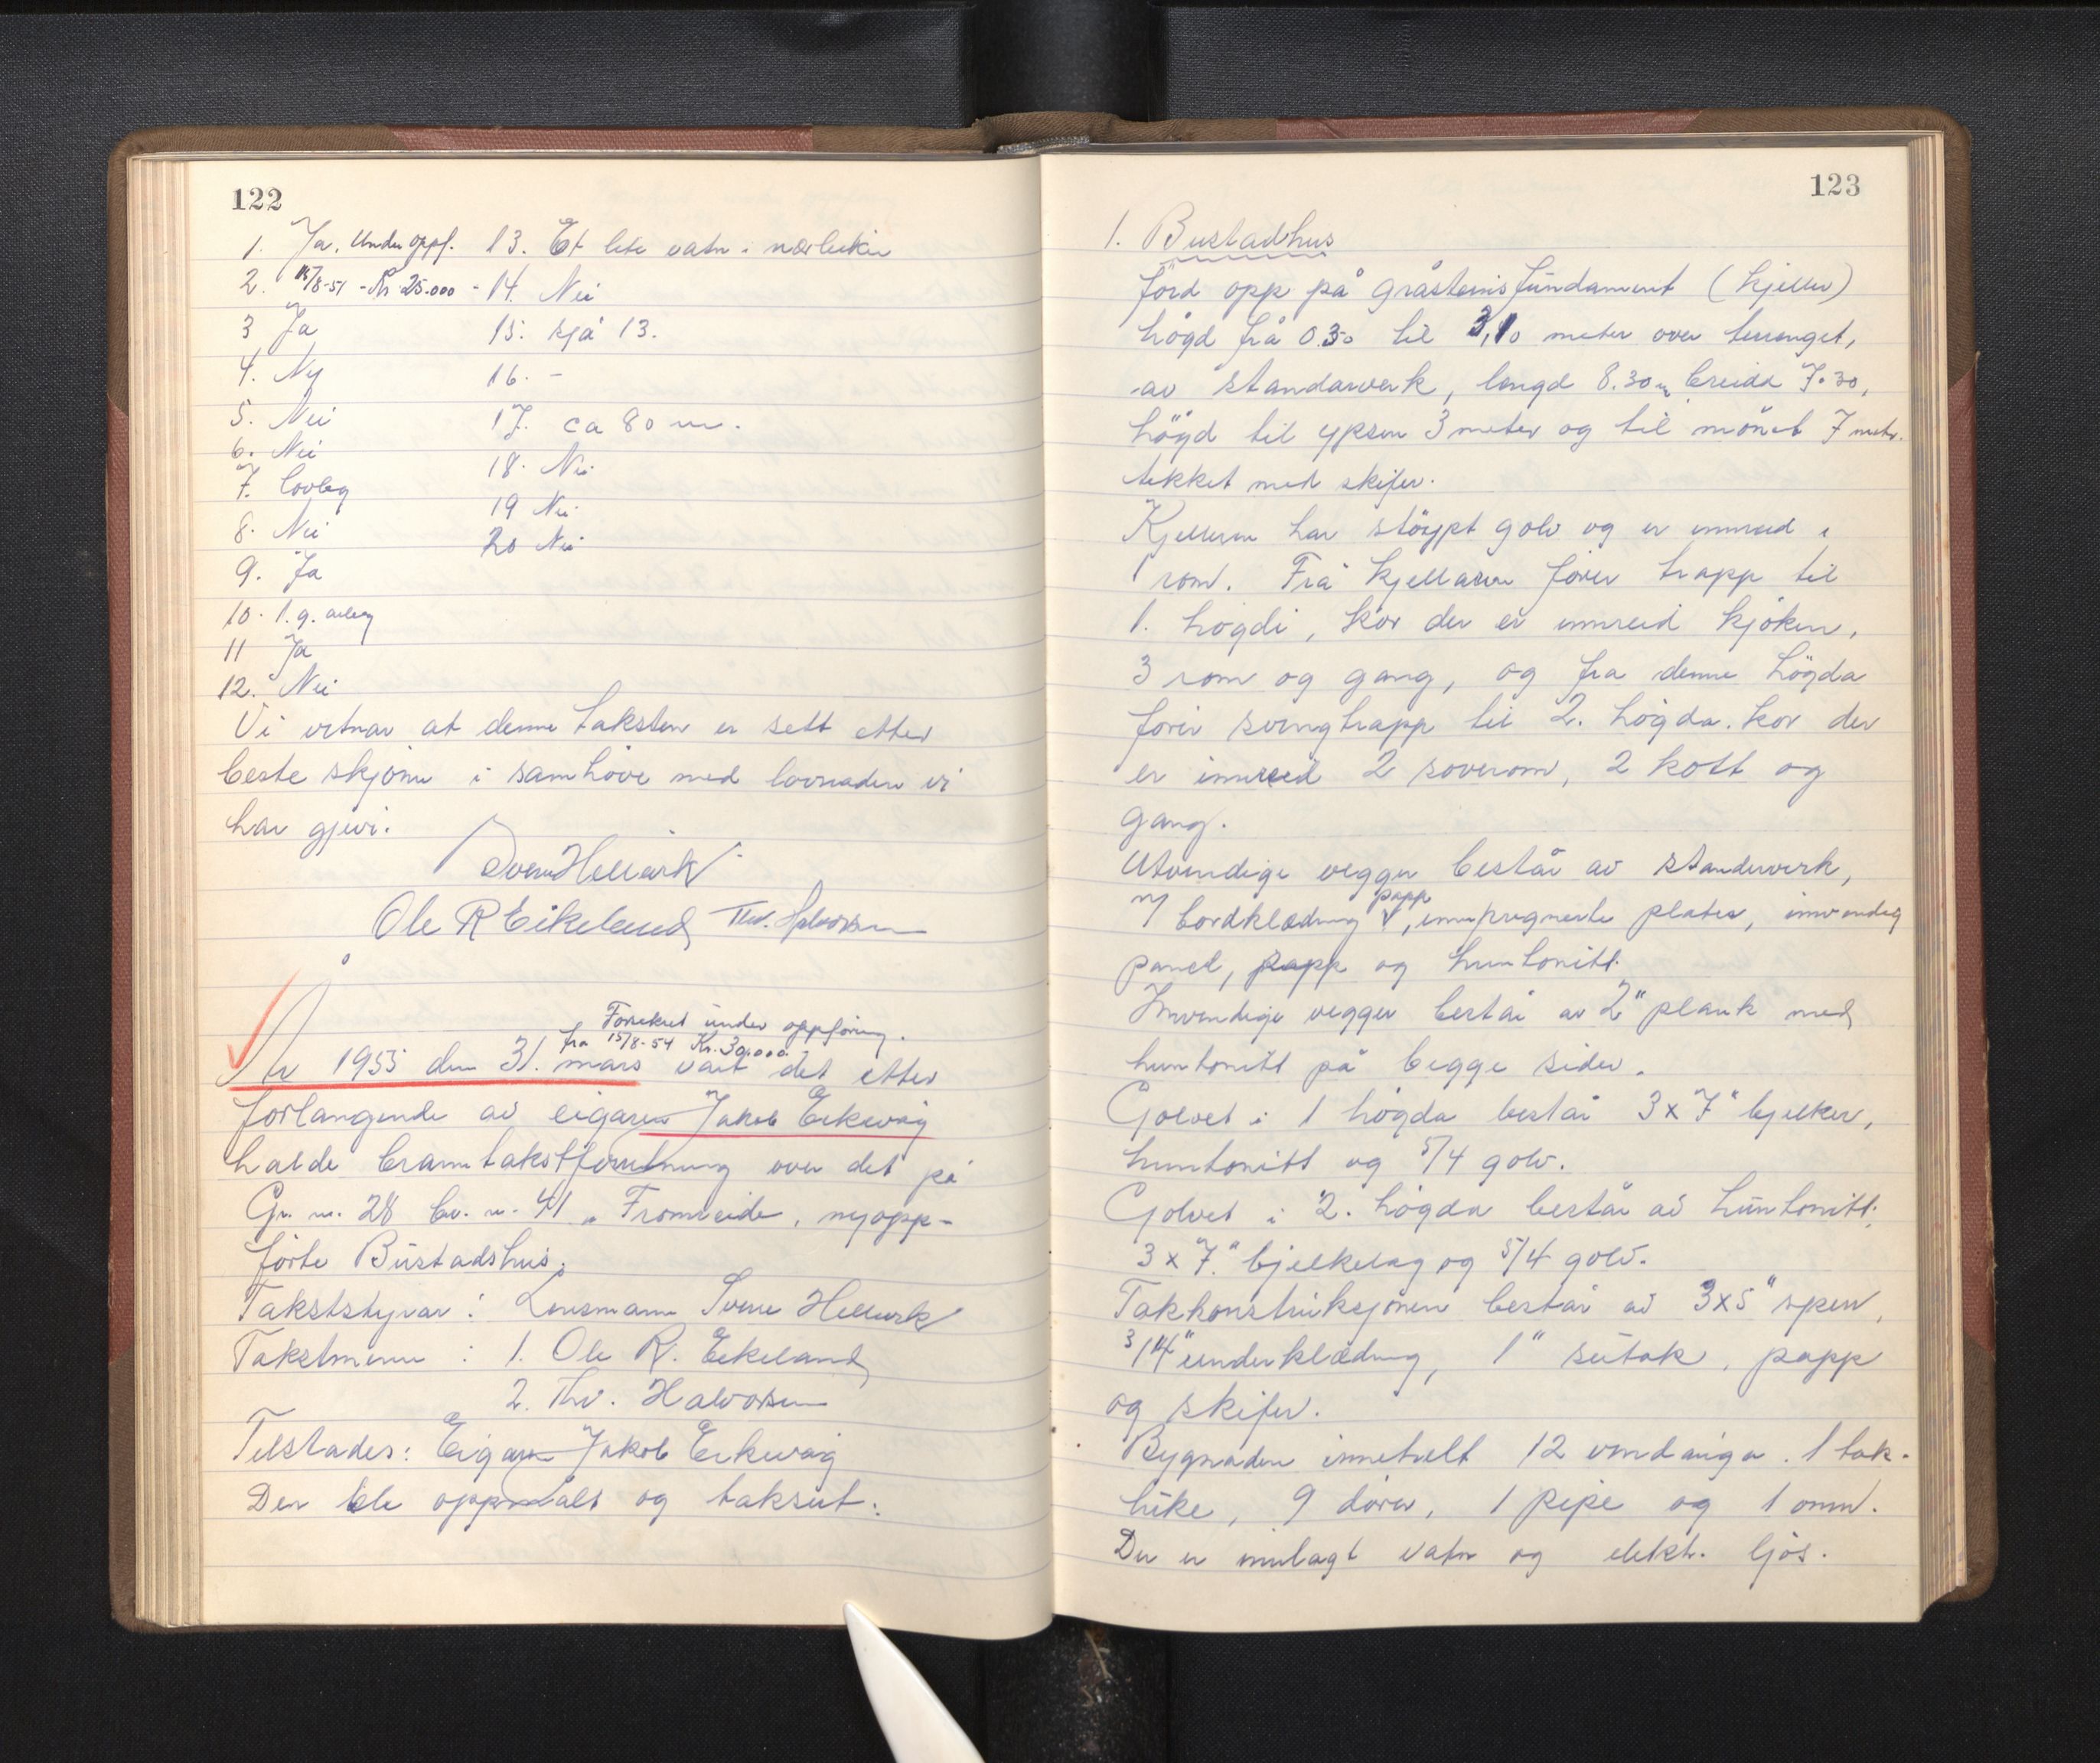 122
1. Ja. Under oppf.
2. 15/8-51 - Kr 25.000 -
3 Ja
4. Ny
5. Nei
6. Nei
7. lovleg
8. Nei
9. Ja
10. 1. g. arleg
11 Ja
12. Nei
13. Et lite vatn i nærleiken
14. Nei
15. sjå 13.
16. -
17. ca 80 m.
18. Nei
19 Nei
20 Nei
Vi vitnar at denne taksten er sett etter
beste skjönn i samhöve med lovnaden vi
har gjevi.
Sverre Hellevik
Ole R Eikeland Thv. Halvorsen
Forsikret under oppföring.
fra 15/8-54 Kr. 30.000.
År 1955 den 31. mars vart det etter
forlangende av eigaren Jakob Eikevåg
halde branntakstforretning over det på
Gr. nr. 28 br. nr. 41 " Fromreide, nyopp-
förte Bustadshus.
Takststyrar: Lensmann Sverre Hellevik
Takstmenn: 1. Ole R. Eikeland
2. Thv. Halvorsen
Tilstades: Eigaren Jakob Eikevåg
Der ble oppmålt og taksert:
123
1. Bustadhus
förd opp på gråsteinsfundament (kjeller)
högd frå 0.30 til 3,10 meter over terrenget,
av standarverk, lengd 8.30 m breidd 7.30,
högd til ypsen 3 meter og til mönet 7 metr.
tekket med skifer.
Kjelleren har stöypt golv og er innreid i
1 rom. Frå kjellaren förer trapp til
1. högdi, kor der er innreid kjöken,
3 rom og gang, og fra denne högda
förer svingtrapp til 2. högda. kor der
er innreid 2 soverom, 2 kott og
gang.
Utvendige vegger består av standerverk,
m/ bordklædning papp, impregnerte plater, innvendig
panel, papp og huntonitt.
Innvendige vegger består av 2" plank med
huntonitt på begge sider.
Golvet i 1 högda består 3x7" bjelker,
huntonitt og 5/4 golv.
Golvet i 2. högda består av huntonitt,
3x7" bjelkelag og 5/4 golv.
Takkonstruksjonen består av 3x5" sperr,
3/4" underklædning, 1" sutak, papp
og skifer.
Bygnaden inneheld 12 vindauga. 1 tak-
luke, 9 dörer, 1 pipe og 1 omn.
Der er innlagt vatn og elekt. ljos.